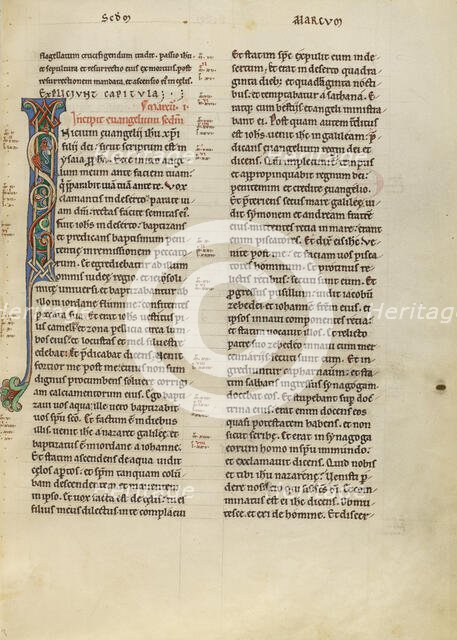 Scdm
Marcum
flagellatum crucifigendum tradit. passio ihu
et sepultura et resurrectio eius et mortuis. post
resurrectionem mandata, et ascensio eius in celis.
Expliciunt capitula;
S. Marcu. I.
Incipit evangelium scdm
Inicium evangelij ihu xpi
filii dei; sicut scriptum est in
ysaia propha. Ecce mitto ange
lum meum ante faciem tuam
qui preparabit uiam tuam ante te. Vox
clamantis in deserto. parate ui
am dni. rectas facite semitas ei
fuit iohs in deserto baptizans
et predicans baptismum peni
tentie in remissionem peccato
rum. et egrediebatur ad illum
omnis iudee regio. et ierosoli
mite uniuersi. et baptizabantur ab
illo in iordane flumine. confitentes
peccata sua. Et erat iohs uestitus pi
lis cameli. et zona pellicia circa lum
bos eius. et locustas et mel siluestre
edebat. Et predicabat dicens. Venit
fortior me post me. cuius non sum
dignus procumbens soluere corrigi
am calciamentorum eius. Ego bapti
zaui uos aqua; ille uero baptizabit
uos spu sco. Et factum est in diebus
illis. uenit ihs a nazaret galilee. et
baptizatus est in iordane a iohanne.
Et statim ascendens de aqua. uidit
celos aptos. et spm tanquam colum
bam descendentem et manentem
in ipso. et uox facta est de celis. tu es
filius meus dilectus. in te complacui
Et statim spc expulit eum in de
sertum. et erat in deserto quadra
ginta dieb; et quadraginta nocti
bus. et temptabatur a sathana. Erat
que cum bestiis. et angeli ministra
bant ei. Post quam autem traditus
est iohs. uenit ihc in galileam.
predicans euangelium regni dei. et
dicens. Quoniam impletum est tempus.
et appropinquabit regnum dei;
penitemini et credite euangelio.
Et preteriens secus mare galilee. ui
dit symonem et andream fratrem
eius mittentes recia in mare; erant
enim piscatores. Et dixit eis ihc. Ve
nite post me. et faciam uos fieri pisca
tores hominum. Et protinus re
lictis recibus. secuti sunt eum. Et
progressus pusillum. uidit iacobum
zebedei et iohannem fratrem eius. et
ipsos in naui componentes recia.
et statim uocauit illos. et relicto
patre suo zebedeo in naui cum
mercennariis. secuti sunt eum. Et in
grediuntur capharnaum. et statim
sabbatis ingressus synagogam
docebat eos. Et stupebant super doc
trina eius. erat enim docens eos
quasi potestatem habens. et non
sicut scribe. Et erat in synagoga
eorum homo in spu immundo.
et exclamauit dicens. Quid nobis
et tibi ihu nazarene. Venisti per
dere nos. scio quis es scs dei. Et com
minatus est ei ihs dicens. Obmu
tesce. et exi de homine. Et discer
Heritage